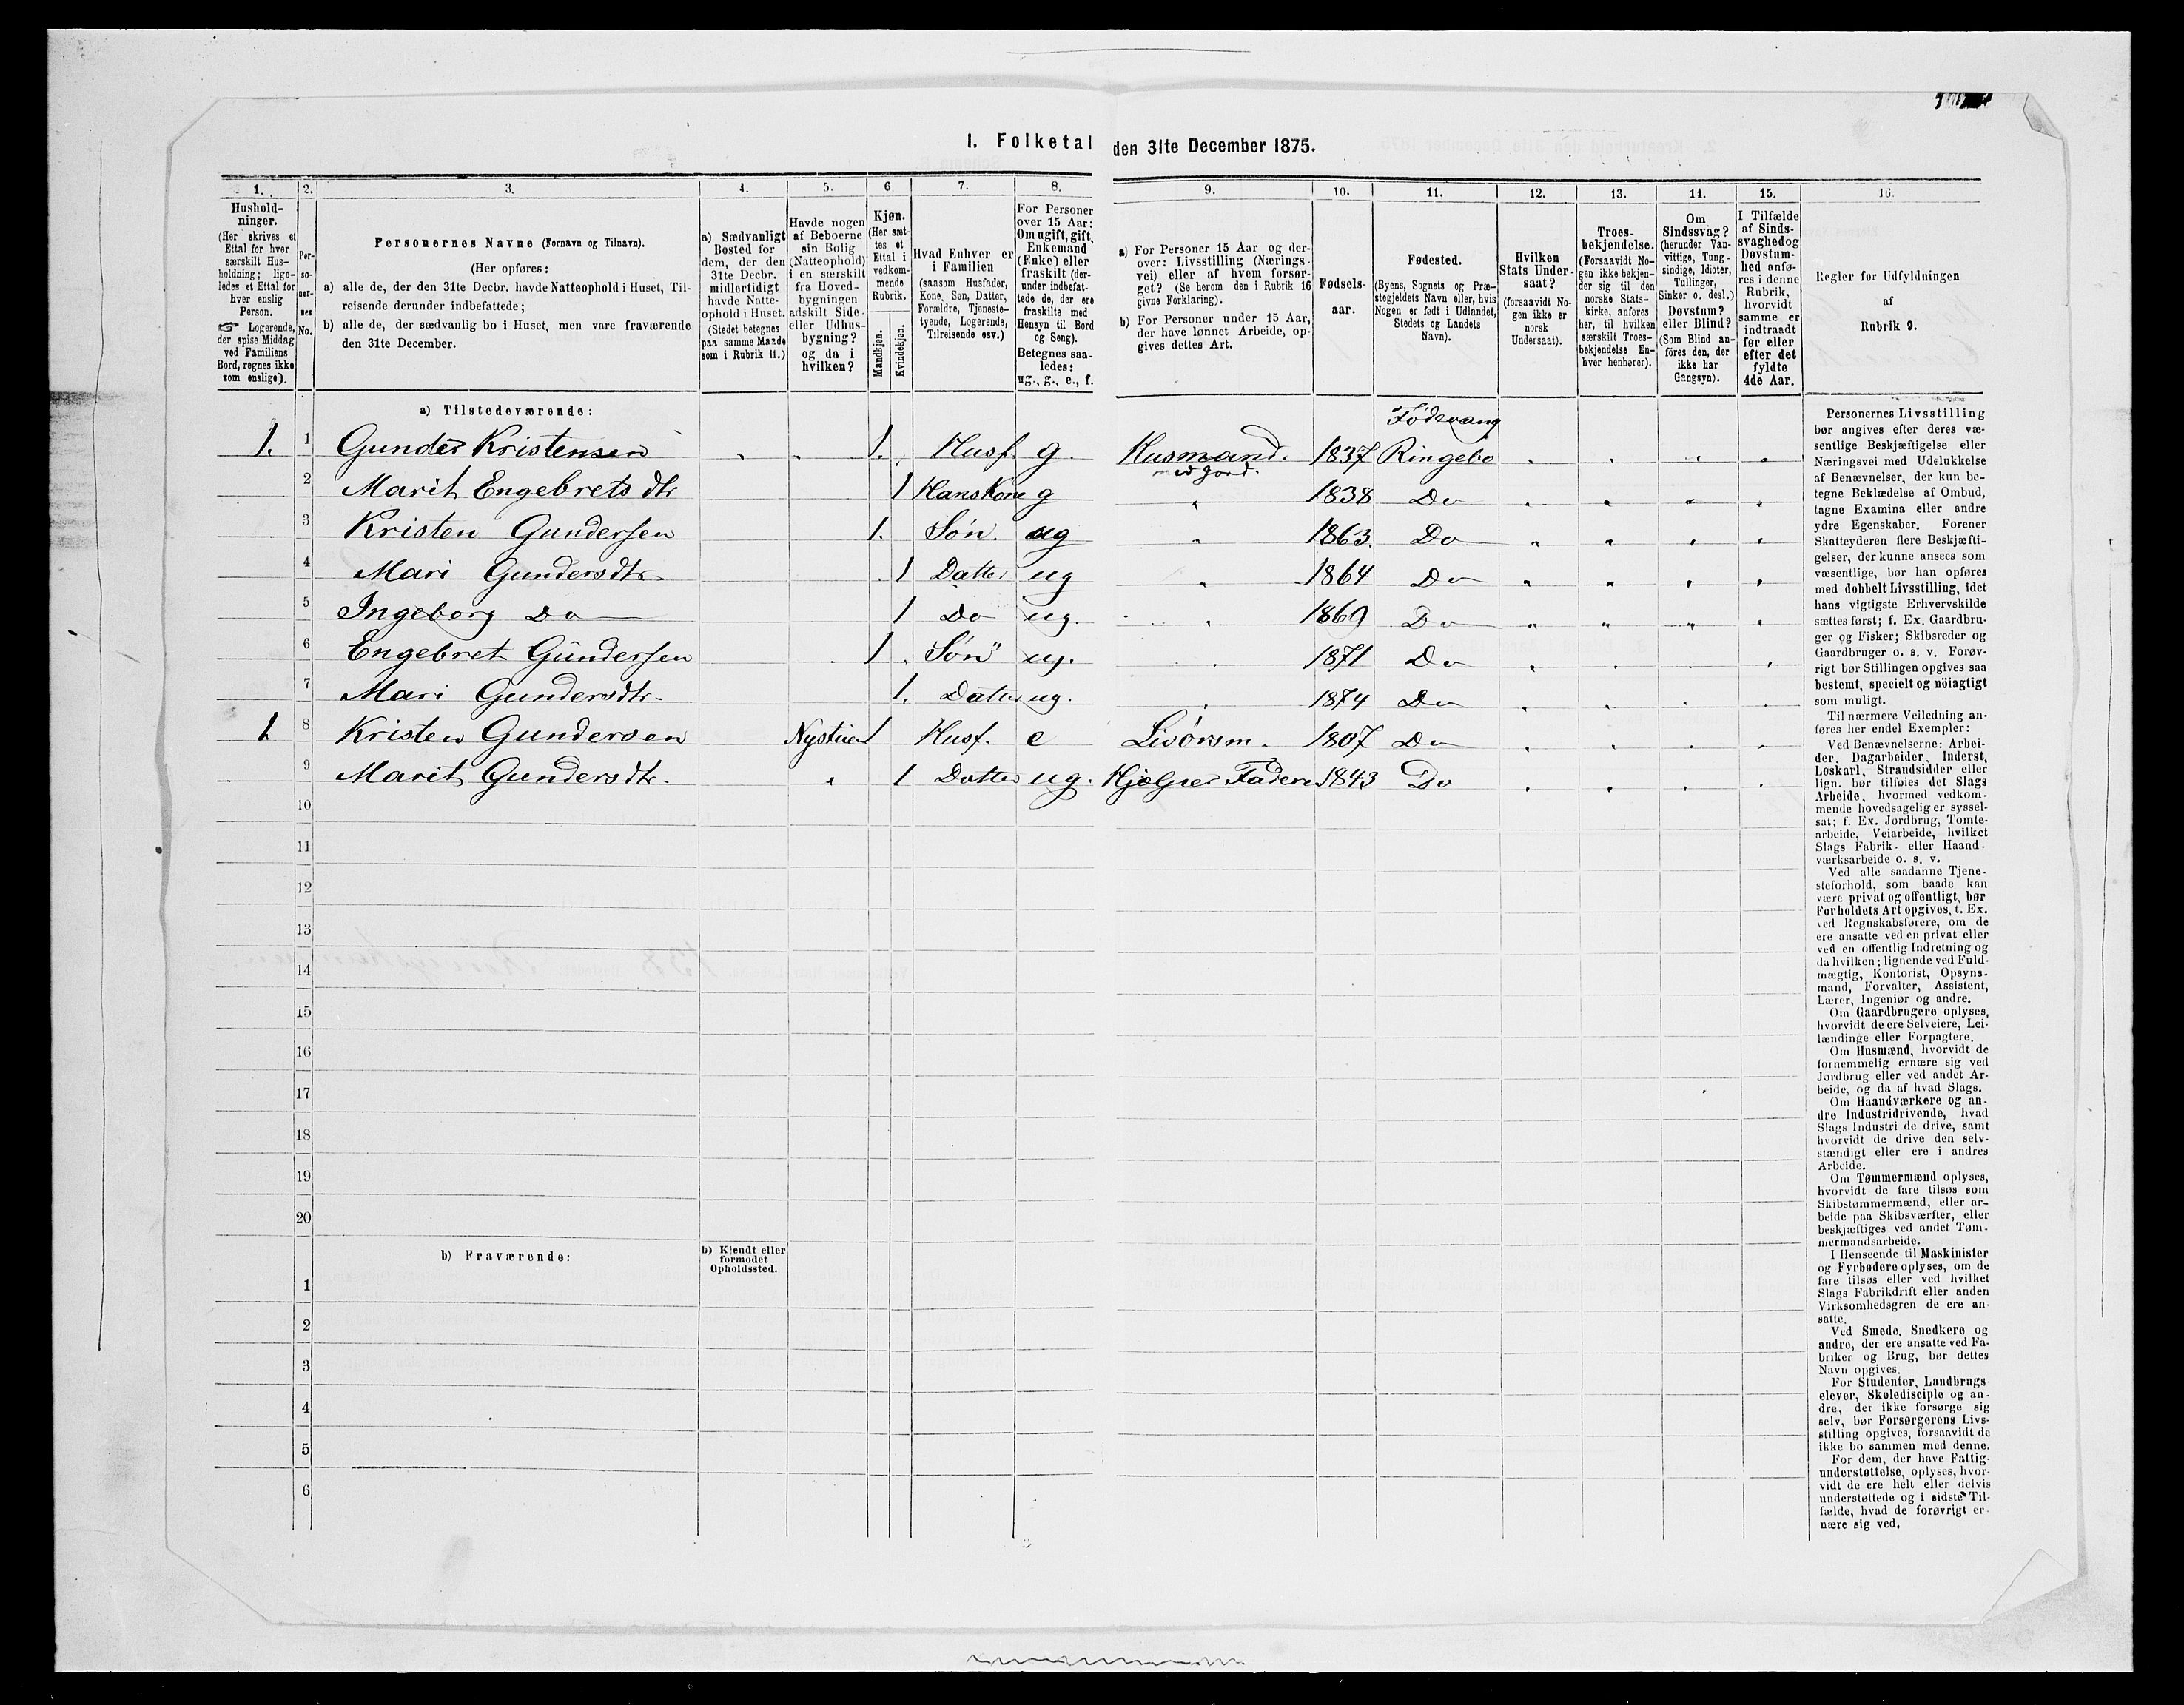 I. Folketal den 31te December 1875.
1. 2. 3. 4. 5. 6. 7. 8. 9. 10. 11. 12. 13. 14. 15. 16.
Hushold-
ninger.
(Her skrives et
Ettal for hver
særskilt Hus-
holdning; lige-
ledes et Ettal for
hver enslig
Person.
☞ Logerende,
der spise Middag
ved Familiens
Bord, regnes ikke
som enslige).
Per-
so-
ner-
nes
No.
Personernes Navne (Fornavn og Tilnavn).
(Her opføres:
a) alle de, der den 31te Decbr. havde Natteophold i Huset, Til-
reisende derunder indbefattede;
b) alle de, der sædvanlig bo i Huset, men vare fraværende
den 31te December.
a) Sædvanligt
Bosted for
dem, der den
31te Decbr.
midlertidigt
havde Natte-
ophold i Huset.
(Stedet betegnes
paa samme Maade
som i Rubrik 11.)
Havde nogen
af Beboerne
sin Bolig
(Natteophold)
i en særskilt
fra Hoved-
bygningen
adskilt Side-
eller Udhus-
bygning?
og da i
hvilken?
Kjøn.
(Her sæt-
tes et
Ettal i
vedkom-
mende
Rubrik.
Mandkjøn.
Kvindekjøn.
Hvad Enhver er
i Familien
(saasom Husfader,
Kone, Søn, Datter,
Forældre, Tjeneste-
tyende, Logerende,
Tilreisende osv.)
For Personer
over 15 Aar:
Om ugift, gift,
Enkemand
(Enke) eller
fraskilt (der-
under indbefat-
tede de, der ere
fraskilte med
Hensyn til Bord
og Seng).
Betegnes saa-
ledes:
ug., g., e., f.
a) For Personer 15 Aar og der-
over: Livsstilling (Nærings-
vei) eller af hvem forsør-
get? (Se herom den i Rubrik 16
givne Forklaring).
b) For Personer under 15 Aar,
der have lønnet Arbeide, op-
gives dettes Art.
Fødsels-
aar.
Fødested.
(Byens, Sognets og Præ-
stegjeldets Navn eller, hvis
Nogen er født i Udlandet,
Stedets og Landets
Navn).
Hvilken
Stats Under-
saat?
(forsaavidt No-
gen ikke er
norsk
Undersaat).
Troes-
bekjendelse.
(Forsaavidt No-
gen ikke bekjen-
der sig til den
norske Stats-
kirke, anføres
her, til hvilken
særskilt Troes-
bekjendelse En-
hver henhører).
Om
Sindssvag?
(herunder Van-
vittige, Tung-
sindige, Idioter,
Tullinger,
Sinker o. desl.)
Døvstum?
eller Blind?
(Som Blind an-
føres den, der
ikke har
Gangsyn).
I Tilfælde
af Sinds-
svaghed og
Døvstum-
hed anfø-
res i denne
Rubrik,
hvorvidt
samme er
indtraadt
før eller
efter det
fyldte
4de Aar.
Regler for Udfyldningen
af
Rubrik 9.
a) Tilstedeværende:
Fødevang
1. 1 Gunder Kristensen 1. Husf. g. Husmand. 1837 Ringebo
med Jord.
2 Marit Engebrets dtr 1 Hans Kone g 1838 Do
3 Kristen Gundersen 1. Søn. ug 1863. Do
4 Mari Gundersdtr 1 Datter ug 1864 Do
5 Ingeborg Do 1 Do ug. 1869 Do
6 Engebret Gundersen 1 Søn ug. 1871 Do
7 Mari Gundersdtr. 1. Datter ug. 1874 Do
1 8 Kristen Gundersen Nystuen 1 Husf. e 1807 Do
9 Marit Gundersdtr. 1 Datter ug. Hjælper Faderen 1843 Do
10
11
12
13
14
15
16
17
18
19
20
b) Fraværende:
b) Kjendt eller
formodet
Opholdssted.
1
2
3
4
5
6
Personernes Livsstilling
bør angives efter deres væ-
sentlige Beskjæftigelse eller
Næringsvei med Udelukkelse
af Benævnelser, der kun be-
tegne Beklædelse af Ombud,
tagne Examina eller andre
ydre Egenskaber. Forener
Skatteyderen flere Beskjæfti-
gelser, der kunne ansees som
væsentlige, bør han opføres
med dobbelt Livsstilling, idet
hans vigtigste Erhvervskilde
sættes først; f. Ex. Gaardbru-
ger og Fisker; Skibsreder og
Gaardbruger o. s. v. Forøv-
rigt bør Stillingen opgives saa
bestemt, specielt og nöiagtigt
som muligt.
Til nærmere Veiledning an-
føres her endel Exempler:
Ved Benævnelserne: Arbei-
der, Dagarbeider, Inderst,
Løskarl, Strandsidder eller
lign. bør tilføies det Slags
Arbeide, hvormed vedkom-
mende hovedsagelig er syssel-
sat; f. Ex. Jordbrug, Tomte-
arbeide, Veiarbeide, hvilket
Slags Fabrik- eller Haand-
værksarbeide o. s. v.
Ved alle saadanne Tjene-
steforhold, som baade kan
være privat og offentligt, bør
Forholdets Art opgives, t. Ex.
ved Regnskabsførere, om de
ere ansatte ved en privat eller
ved en offentlig Indretning og
da hvilken; lignende ved Fuld-
mægtig, Kontorist, Opsyns-
mand, Forvalter, Assistent,
Lærer, Ingeniør og andre.
Om Gaardbrugere oplyses,
hvorvidt de ere Selveiere, Lei-
lændinge eller Forpagtere.
Om Husmænd, hvorvidt de
fornemmelig ernære sig ved
Jordbrug eller ved andet Ar-
beide, og da af hvad Slags.
Om Haandværkere og an-
dre Industridrivende, hvad
Slags Industri de drive, samt
hvorvidt de drive den selv-
stændigt eller ere i andres
Arbeide.
Om Tømmermænd oplyses,
hvorvidt de fare tilsøs som
Skibstømmermænd, eller ar-
beide paa Skibsværfter, eller
beskjæftiges ved andet Tøm-
mermandsarbeide.
I Henseende til Maskinister
og Fyrbødere oplyses, om de
fare tilsøs eller ved hvilket
Slags Fabrikdrift eller anden
Virksomhedsgren de ere an-
satte.
Ved Smede, Snedkere og
andre, der ere ansatte ved Fa-
briker og Brug, bør dettes
Navn opgives.
For Studenter, Landbrugs-
elever, Skoledisciple og an-
dre, der ikke forsørge sig
selv, bør Forsørgerens Livs-
stilling opgives, forsaavidt de
ikke bo sammen med denne.
For dem, der have Fattig-
understøttelse, oplyses, hvor-
vidt de ere helt eller delvis
understøttede og i sidste Til-
fælde, hvad de forøvrigt er-
nære sig ved.